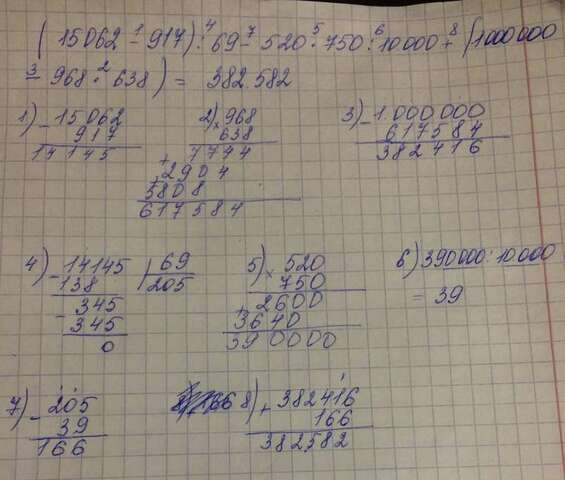 (15062 - 917) : 69 - 520 · 750 : 10000 + (1000000
- 968 · 638) = 382.582
1) - 15062
917
14145
2) × 968
638
7744
+ 2904
+ 5808
617584
3) - 1.000000
617584
382416
4) - 14145 | 69
138 205
- 345
345
0
5) × 520
750
+ 2600
3640
390000
6) 390000 : 10000
= 39
7) - 205
39
166
8) + 382416
166
382582